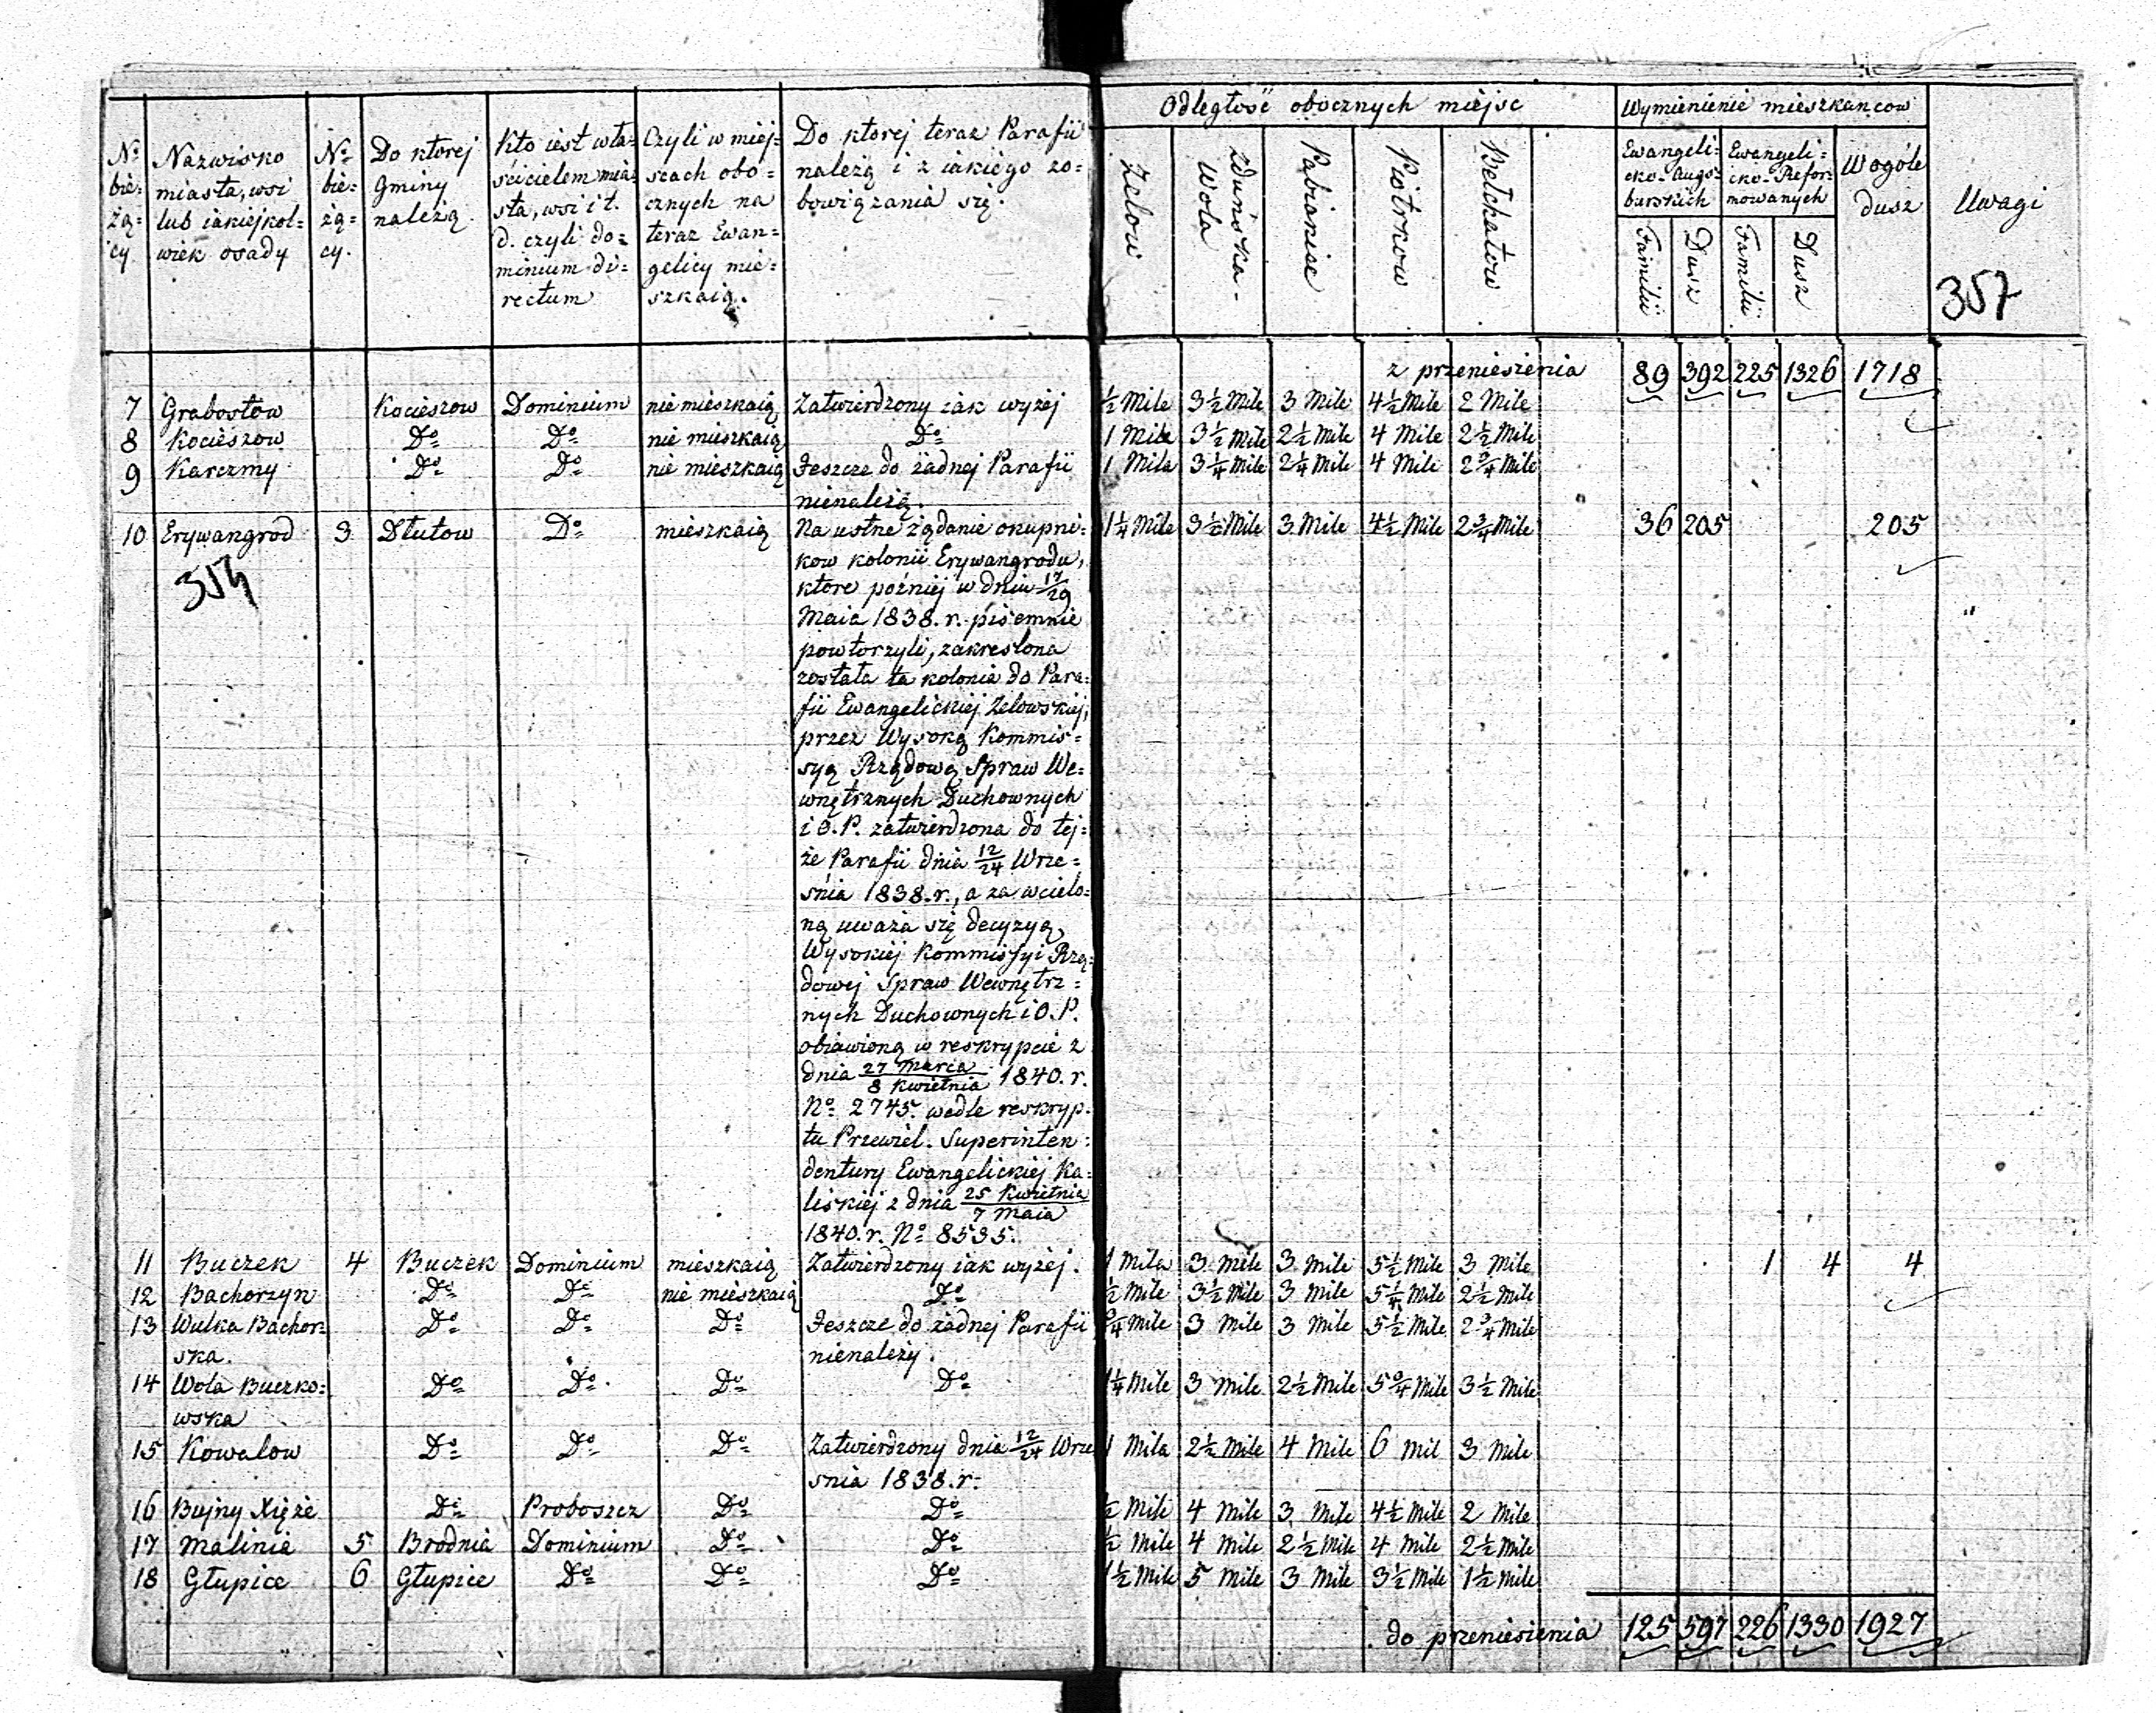 Odległość obocznych miejsc
Wymienienie mieszkancow
Nº bieżący
Nazwisko miasta, wsi lub iakiejkolwiek osady
Nº bieżący.
Do ktorej Gminy należią
Kto iest właścicielem miasta, wsi i t. d. czyli dominium directum
Czyli w miejscach obocznych na teraz Ewangelicy mieszkaią.
Do ktorej teraz Parafii należą i z iakiego zobowiązania się.
Zelow
Zduńska-Wola
Pabianice
Piotrkow
Bełchatow
Ewangelicko-Augsburskich
Ewangelicko-Reformowanych
Familii
Dusz
Familii
Dusz
Wogóle dusz
Uwagi
357
z przeniesienia 89 392 225 1326 1718
7 Grabostow Kocieszow Dominium nie mieszkaią Zatwierdzony iak wyżej ½ Mile 3½ Mile 3 Mile 4½ Mile 2 Mile
8 Kocieszow Dº Dº nie mieszkaią Dº 1 Mile 3½ Mile 2½ Mile 4 Mile 2½ Mile
9 Karczmy Dº Dº nie mieszkaią Jeszcze do żadnej Parafii 1 Mila 3¼ Mile 2¼ Mile 4 Mile 2¾ Mile
nienależą.
10 Erywangrod 3 Dłutow Dº mieszkaią Na ustne żądanie okupni= 1¼ Mile 3½ Mile 3 Mile 4½ Mile 2¾ Mile 36 205 205
kow kolonii Erywangrodu,
354
ktore poźniej w dniu 17/29
Maia 1838. r. pisemnie
powtorzyli, zakreslona
została ta kolonia do Para=
fii Ewangelickiej Zelowskiej,
przez Wysoką Kommis=
syą Rządową Spraw We=
wnętrznych Duchownych
i O. P. zatwierdzona do tej=
że Parafii dnia 12/24 Wrze=
śnia 1838. r., a za wcielo=
ną uważa się decyzyą
Wysokiej Kommissyi Rzą=
dowej Spraw Wewnętrz=
nych Duchownych i O. P.
obiawioną w reskrypcie z
dnia 27 Marca/8 Kwietnia 1840. r.
Nº 2745. wedle reskryp=
tu Przewiel. Superinten=
dentury Ewangelickiej Ka=
liskiej z dnia 25 Kwietnia/7 Maia
1840. r. Nº 8535.
11 Buczek 4 Buczek Dominium mieszkaią Zatwierdzony iak wyżej. 1 Mila 3 Mile 3 Mile 5½ Mile 3 Mile 1 4 4
12 Bachorzyn Dº Dº nie mieszkaią Dº ½ Mile 3½ Mile 3 Mile 5¼ Mile 2½ Mile
13 Wulka Bachor= Dº Dº Dº Jeszcze do żadnej Parafii ¾ Mile 3 Mile 3 Mile 5½ Mile 2¾ Mile
ska. nienależy.
14 Wola Buczko= Dº Dº Dº Dº 1¼ Mile 3 Mile 2½ Mile 5¾ Mile 3½ Mile
wska
15 Kowalow Dº Dº Dº Zatwierdzony dnia 12/24 Wrze 1 Mila 2½ Mile 4 Mile 6 Mil 3 Mile
snia 1838. r.
16 Bujny Xięże Dº Proboszcz Dº Dº ½ Mile 4 Mile 3 Mile 4½ Mile 2 Mile
17 Malinia 5 Brodnia Dominium Dº Dº ½ Mile 4 Mile 2½ Mile 4 Mile 2½ Mile
18 Głupice 6 Głupice Dº Dº Dº 1½ Mile 5 Mile 3 Mile 3½ Mile 1½ Mile
do przeniesienia 125 597 226 1330 1927